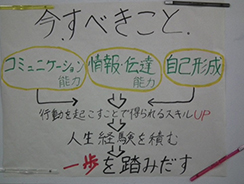 今、すべきこと。
コミュニケーション能力 情報・伝達能力 自己形成
行動を起こすことで得られるスキルUP
人生経験を積む
一歩を踏みだす